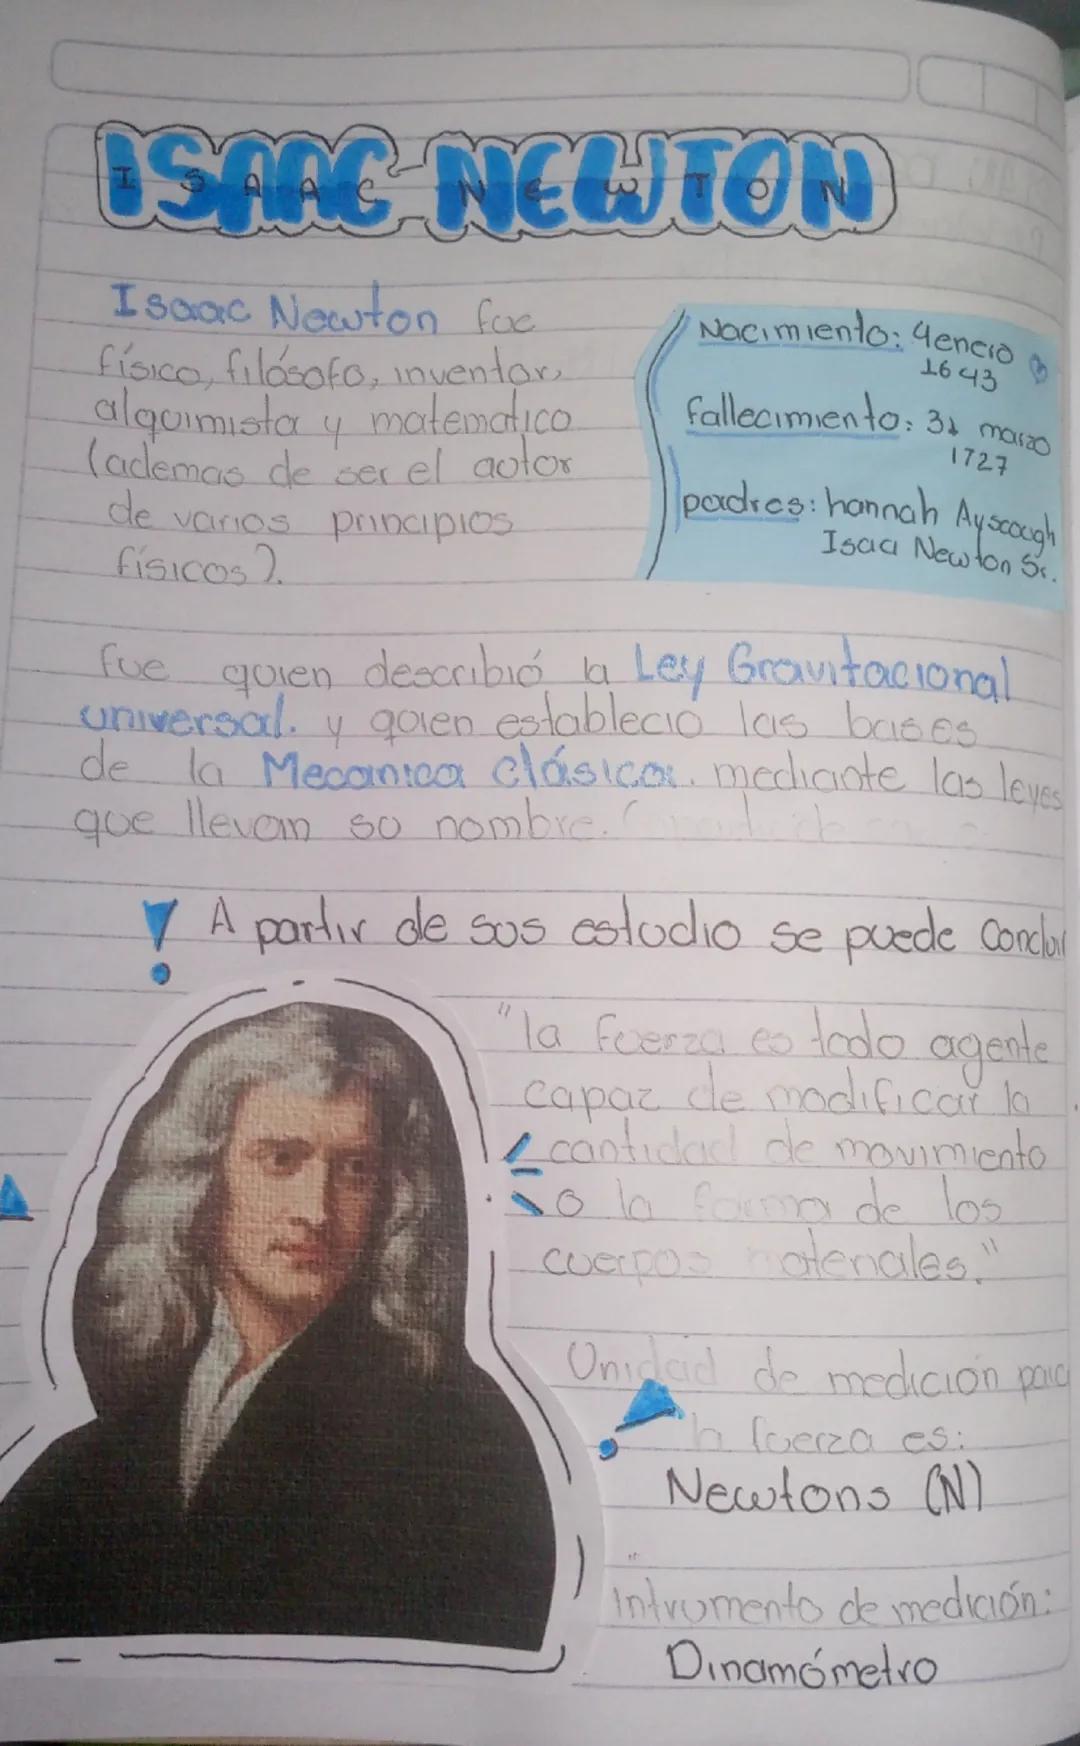 ISAAC NEWTON
Isaac Newton fue
físico, filósofo, inventor,
alquimista y matematico
(ademas de ser el autor
de varios principios
físicos).
Nacimiento: 4 enero
1643
fallecimiento: 31 marzo
1727
padres: hannah Ayscough
Isaa Newton Sr.
fue quien describió la Ley Gravitacional
universal. y quien establecio las bases
de la Mecanica clásica. mediante las leyes
que llevan su nombre.
A partir de sus estudio se puede Concluir
"la fuerza es todo agente
capaz de modificar la
cantidad de movimiento
o la forma de los
cuerpos materiales."
Unidad de medición para
la fuerza es:
Newtons (N)
Intrumento de medición:
Dinamómetro